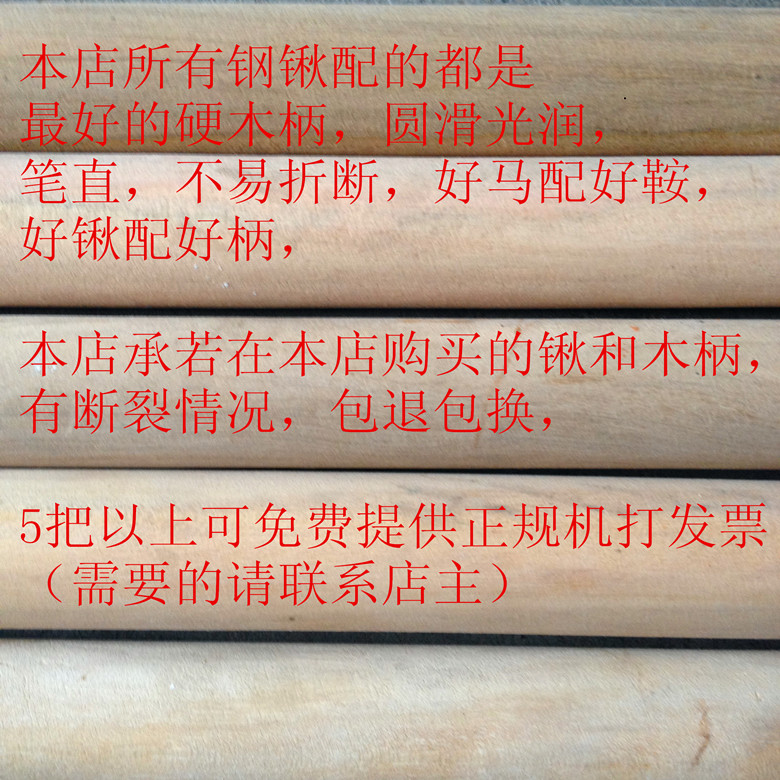 本店所有钢锹配的都是
最好的硬木柄，圆滑光润，
笔直，不易折断，好马配好鞍，
好锹配好柄，
本店承若在本店购买的锹和木柄，
有断裂情况，包退包换，
5把以上可免费提供正规机打发票
（需要的请联系店主）